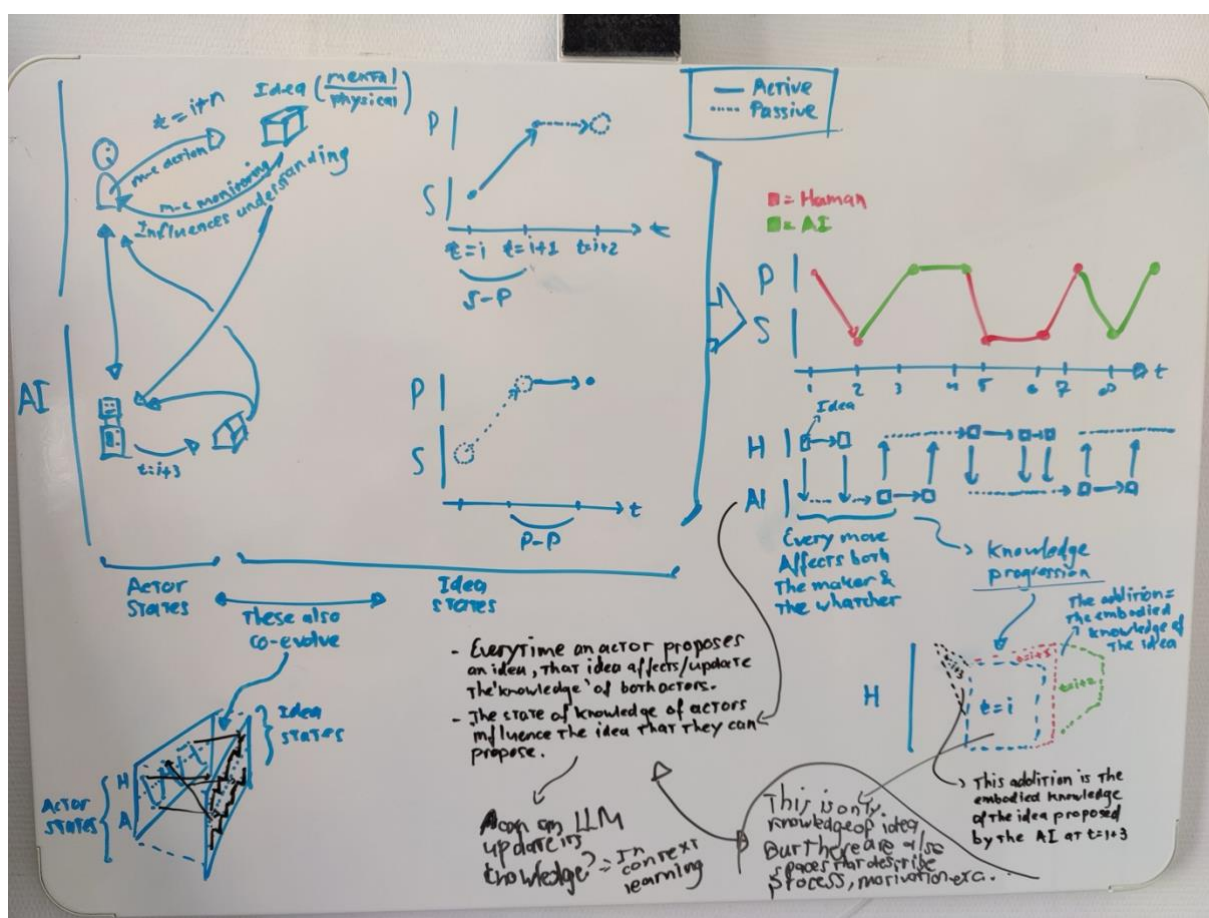 t=i+n
Idea (mental/physical)
m-c action
m-c monitoring
Influences understanding
AI
t=i+3
Actor
States
Idea
States
P
S
t=i
t=i+1
t=i+2
t
S-P
P
S
t
P-P
Active
Passive
= Human
= AI
P
S
1 2 3 4 5 6 7 8 t
Idea
H
AI
Every move
Affects both
The maker &
The whatcher
Knowledge
progression
The addition=
The embodied
knowledge of
The idea
H
t=i
t=i+2
This addition is The
embodied knowledge
of the idea proposed
by the AI at t=i+3
These also
co-evolve
Idea
states
Actor
states
H
A
- Everytime an actor proposes
an idea, that idea affects/update
the 'knowledge' of both actors.
- The state of knowledge of actors
influence the idea that they can
propose.
can an LLM
update its
knowledge? = In context
learning
This is only
knowledge of idea
But there are also
spaces that describe
process, motivation etc..